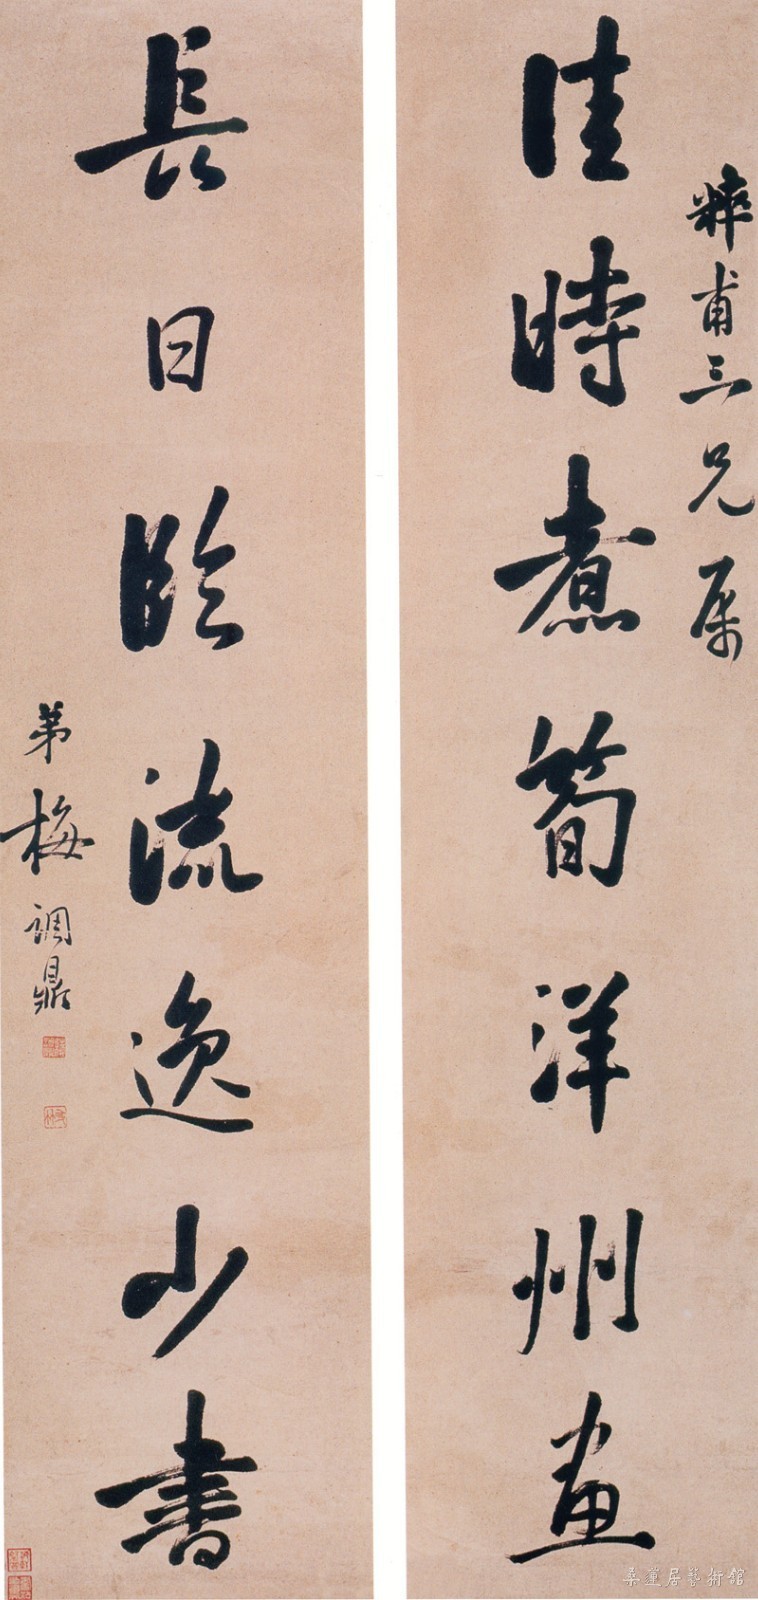 粹甫三兄属
佳時煮筍洋州画
長日臨流逸少書
弟梅調鼎
桑蓮居藝術館